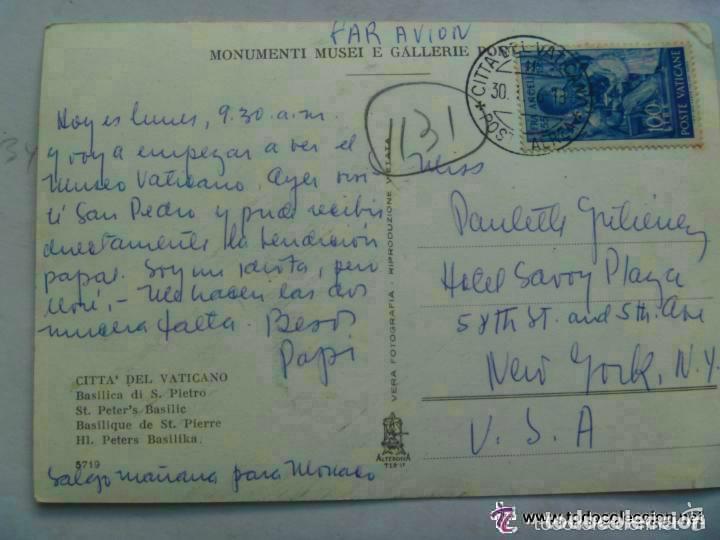 PAR AVION
MONUMENTI MUSEI E GALLERIE PONT
CITTA' DEL VATICANO
POS
30.
100
POSTE VATICANE
1131
Hoy es lunes, 9.30 a.m.
y voy a empezar a ver el
Museo Vaticano. Ayer visi
té San Pedro y pude recibir
directamente la bendición
papal. Soy un idiota, pero
lloré. - Me hacen las dos
mucha falta. Besos
Papi
Miss
Paulette Gutiérrez
Hotel Savoy Plaza
58th St. and 5th. Ave
New York, N.Y.
U.S.A
VERA FOTOGRAFIA - RIPRODUZIONE VIETATA
CITTA' DEL VATICANO
Basilica di S. Pietro
St. Peter's Basilic
Basilique de St. Pierre
Hl. Peters Basilika
5719
ALTEROCCA
TERNI
Salgo mañana para Monaco
www.todocoleccion.net
todocoleccion